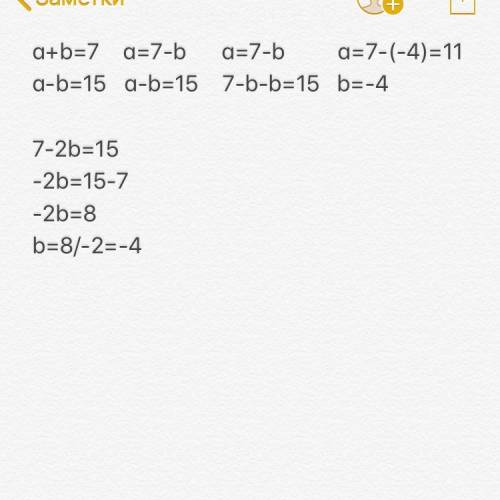 Заметки
a+b=7 a=7-b a=7-b a=7-(-4)=11
a-b=15 a-b=15 7-b-b=15 b=-4
7-2b=15
-2b=15-7
-2b=8
b=8/-2=-4